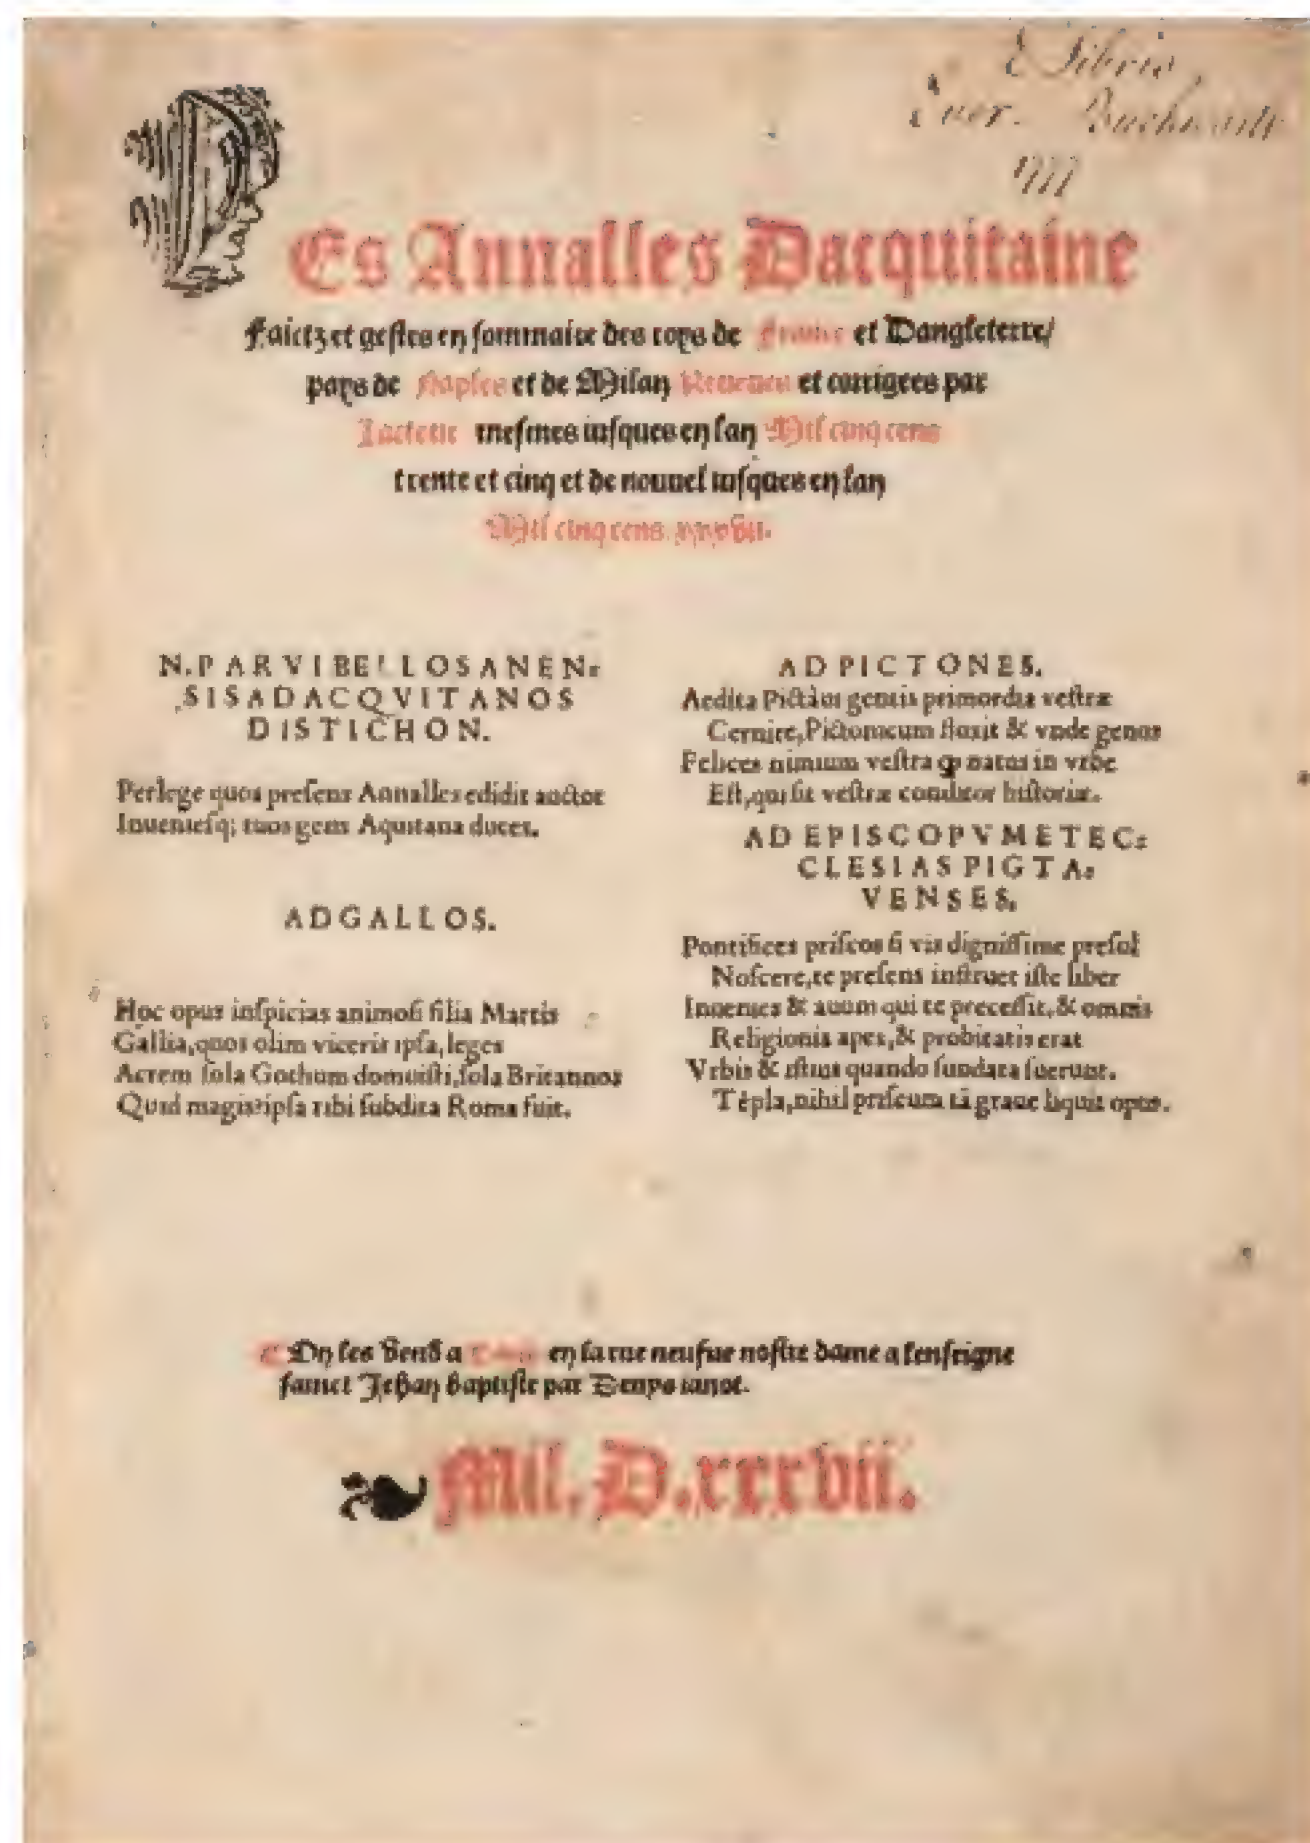 Es Annalles Dacquitaine
Faictz et gestes en sommaire des roys de France et Dangleterre/
pays de Naples et de Milan Reueues et corrigees par
Lacteur mesmes iusques en lan Mil cinq cens
trente et cinq et de nouuel iusques en lan
Mil cinq cens. xxxvii.
N. PARVI BELLOSANEN-
SIS AD ACQVITANOS
DISTICHON.
Perlege quos presens Annalles edidit auctor
Inueniesq; tuos gens Aquitana duces.
AD GALLOS.
Hoc opus inspicias animosi filia Martis
Gallia, quos olim viceris ipsa, leges
Acrem sola Gothum domuisti, sola Britannos
Quid magis? ipsa tibi subdita Roma fuit.
AD PICTONES.
Aedita gentis primordia vestræ
Cernite, Pictonicum fluxit & vnde genus
Felices nimium vestra ꝙ natus in vrbe
Est, qui sit vestræ conditor historiæ.
AD EPISCOPVM ET EC-
CLESIAS PIGTA-
VENSES.
Pontifices priscos si vis dignissime presul
Noscere, te presens instruet iste liber
Inuenies & auum qui te precessit, & omnis
Religionis apex, & probitatis erat
Vrbis & istius quando fundata fuerunt.
Tēpla, nihil priscum tā graue liquit opus.
On les vend a Paris en la rue neufue nostre dame a lenseigne
sainct Jehan baptiste par Denys ianot.
Mil. D. xxxvii.